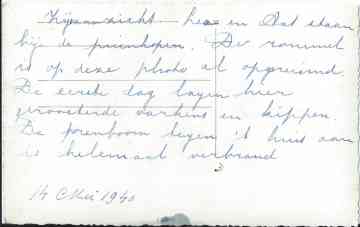 Zijaanzicht hees en Piet staan
bij de puinhopen. De rommel
is op deze photo al opgeruimd.
De eerste dag lagen hier
geroosterde varkens en kippen.
De perenboom tegen 't huis aan
is helemaal verbrand
14 Mei 1940